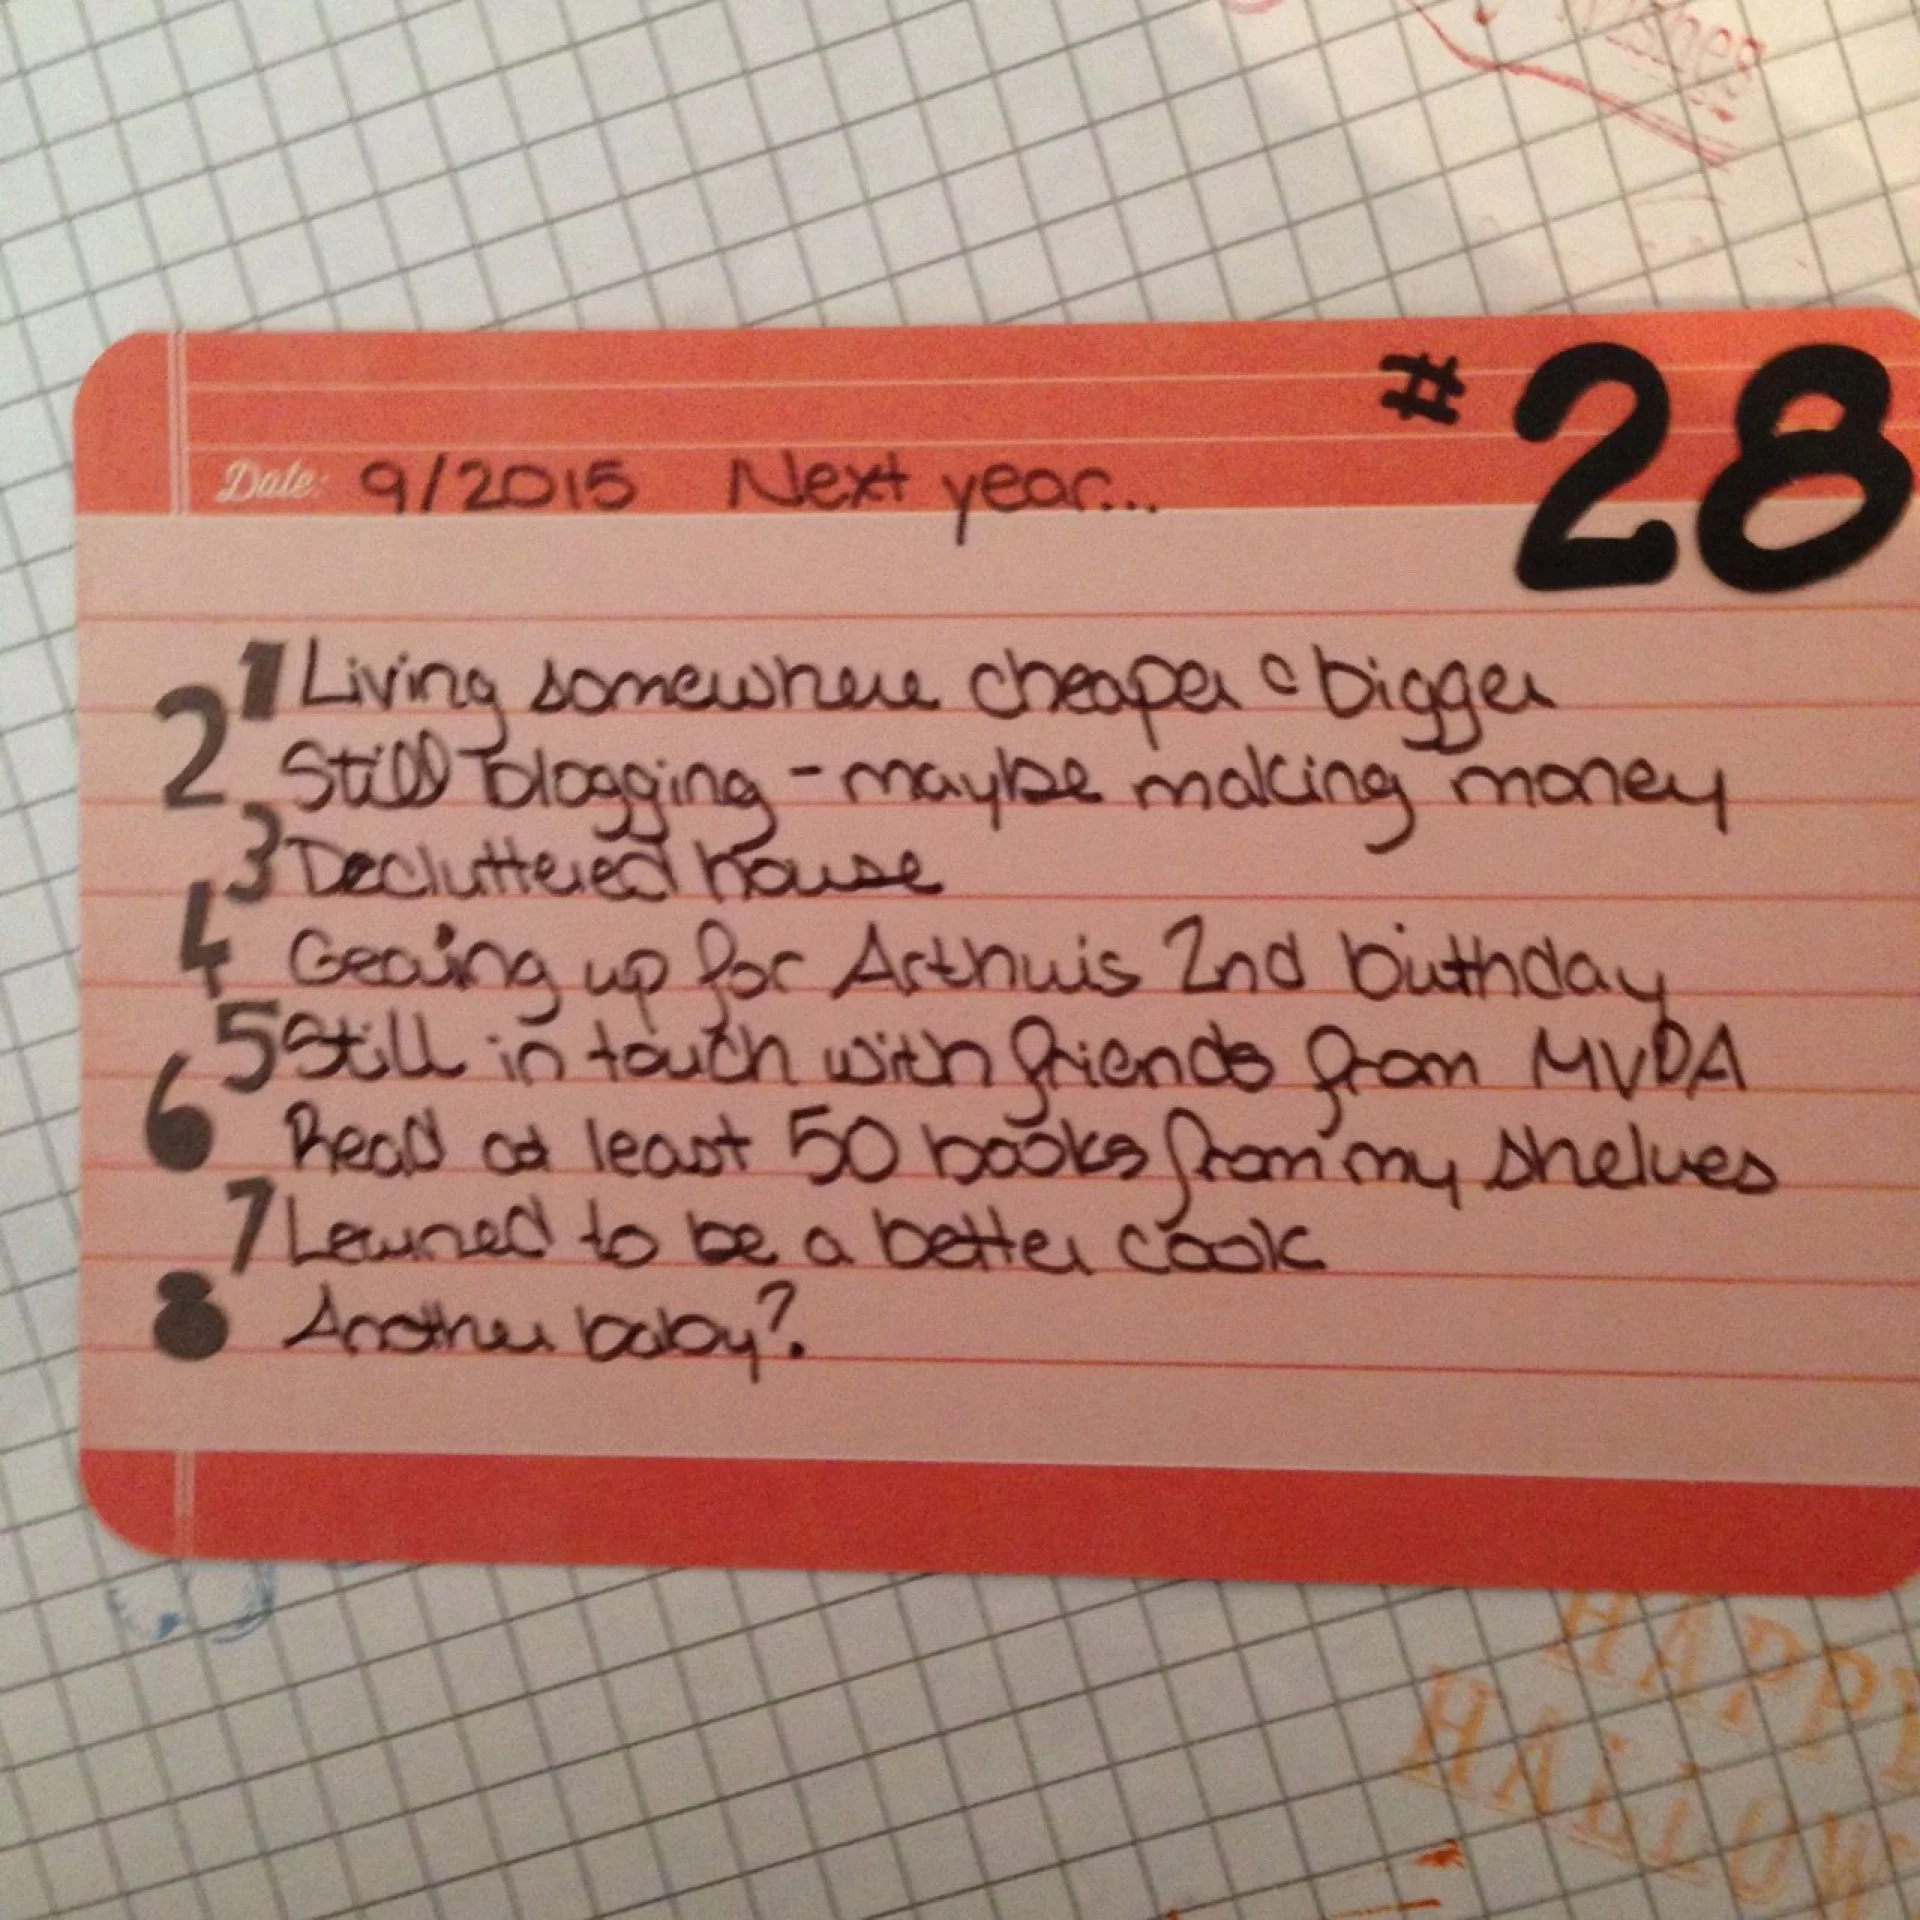 Wishes
#28
Date: 9/2015 Next year...
1 Living somewhere cheaper & bigger
2 Still blogging - maybe making money
3 Decluttered house
4 Gearing up for Arthur's 2nd birthday
5 Still in touch with friends from MVDA
6 Read at least 50 books from my shelves
7 Learned to be a better cook
8 Another baby?
HAPPY
HALLOW